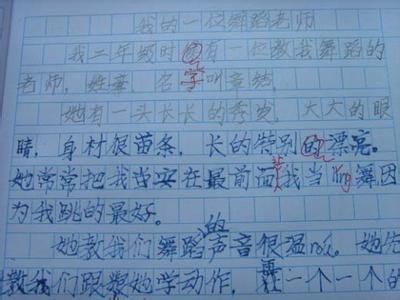 我的一位舞蹈老师
我二年级时有一位教我舞蹈的
老师，姓章，名字叫章
她有一头长长的秀发，大大的眼
睛，身材很苗条，长的特别的漂亮。
她常常把我安在最前面我当ling舞因
为我跳的最好。
她教我们舞蹈的声音很温roú。她先
教我们跟她学动作，一个一个的